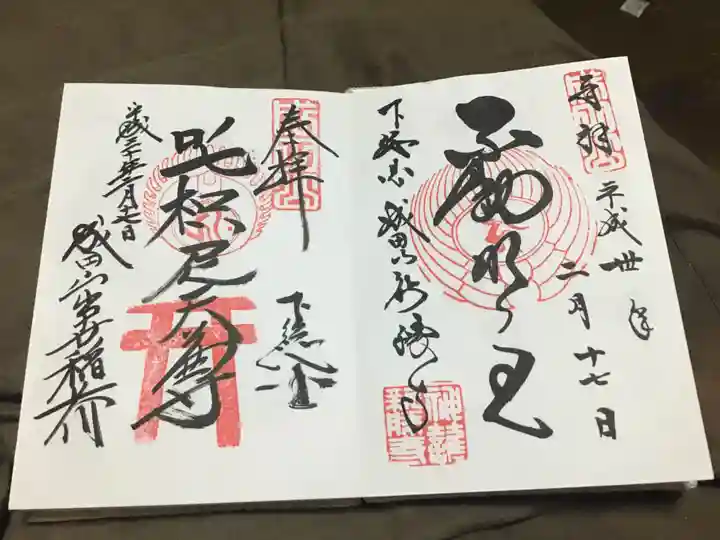 奉拝
平成卅年
二月十七日
不動明王
下総国成田山新勝寺
奉拝
下総
吒枳尼天尊
平成三十年二月十七日
成田山出世稲荷